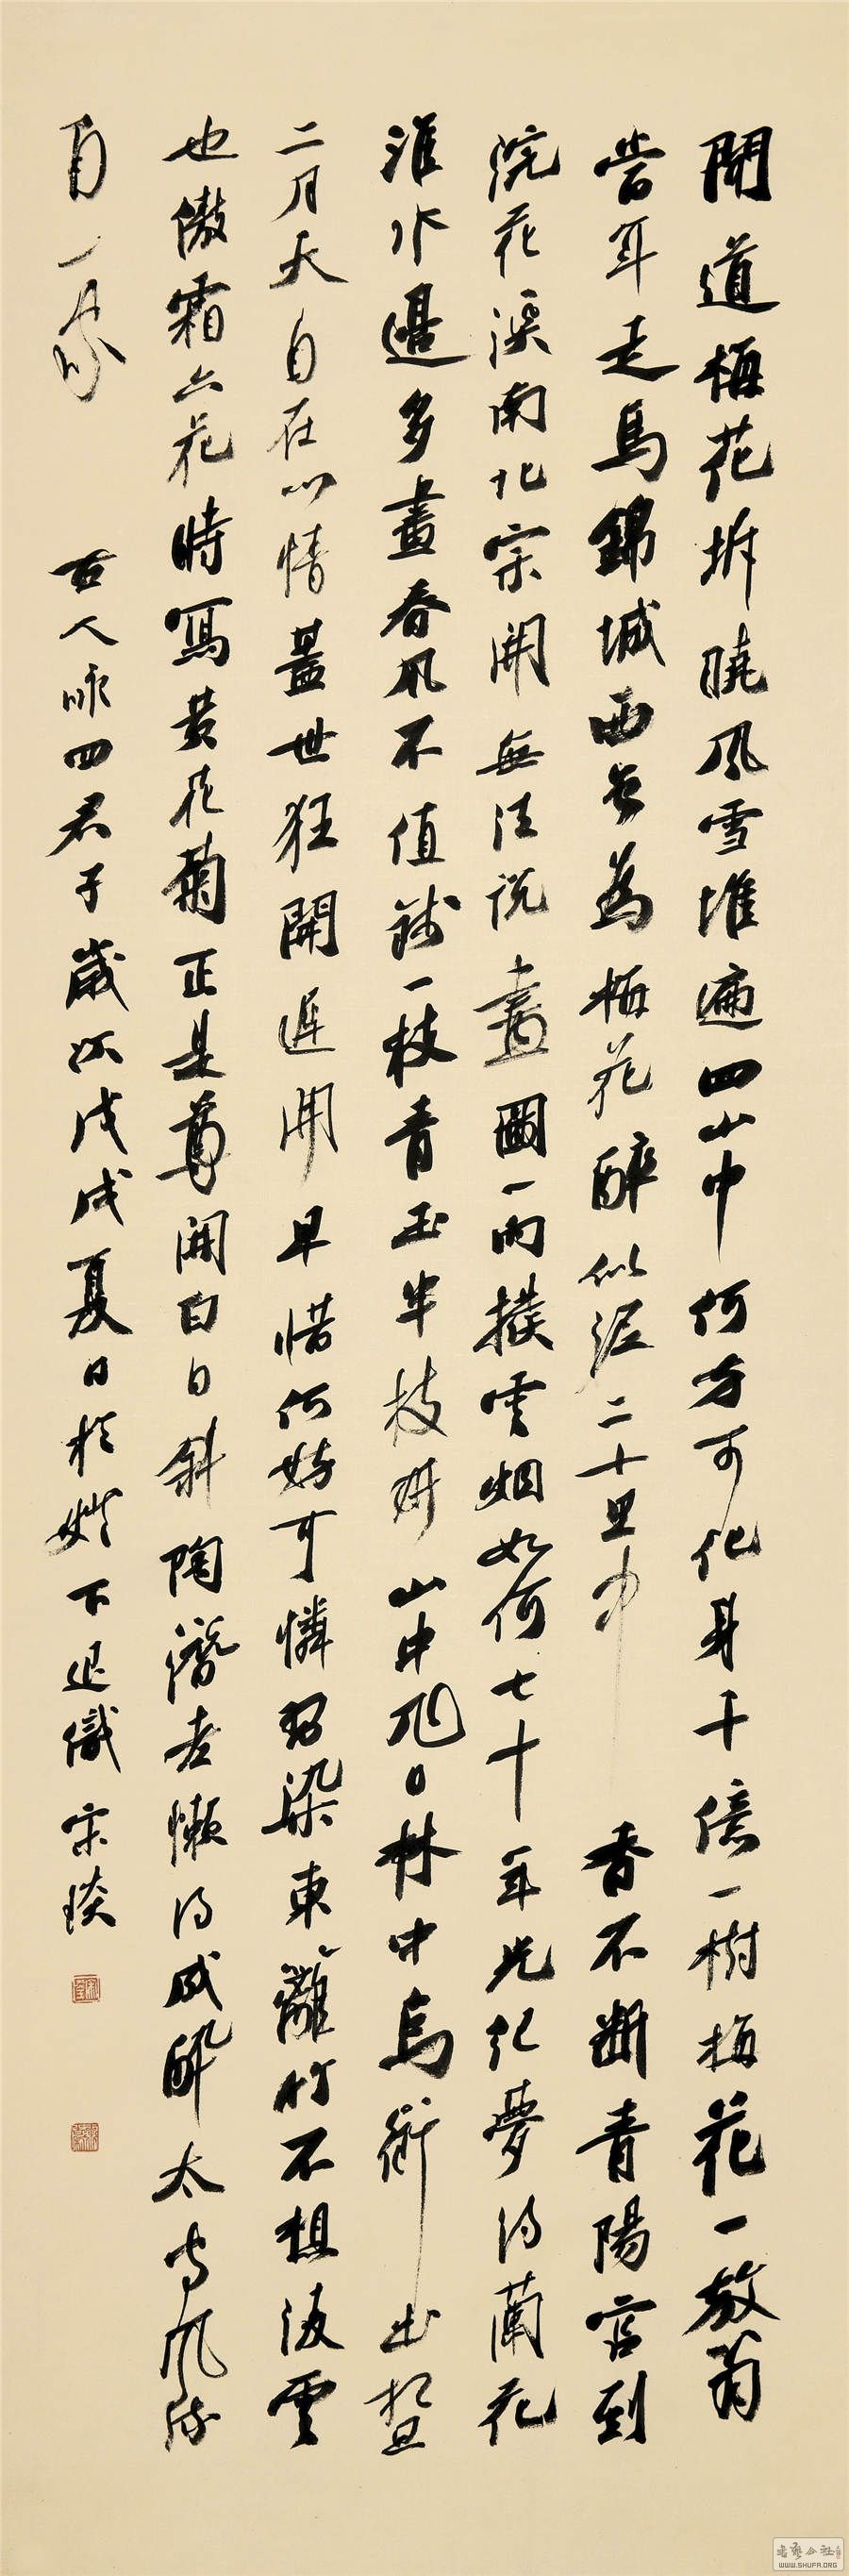 聞道梅花坼曉風雪堆遍四山中何方可化身千億一樹梅花一放翁
當年走馬錦城西曾為梅花醉似泥二十里中香不斷青陽宮到
浣花溪南北宗開無法說畫圖一向撥雲烟如何七十年光紀夢得蘭花
淮水邊多畫春風不值錢一枝青玉半枝妍山中旭日林中鳥銜出相
二月天自在心情蓋世狂開遲開早惜何妨可憐習染東籬竹不想凌雲
也傲霜花時寫黃花菊正是尊開白日斜陶潛老懶得成醉太守風流
自一家
古人詠四君子歲次戊戌夏日於下識宋琰
WWW.SHUFA.ORG